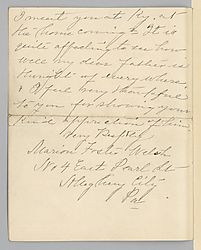 I meet you at Ky. at
the "home coming". It is
quite affecting to see how
well my dear father is
thought of everywhere,
& I feel very thankful
to you for showing your
kind appreciation of him.
Very Respectf
Marion Foster Welsh
No 4 East Pearl St
Allegheny City
Pa